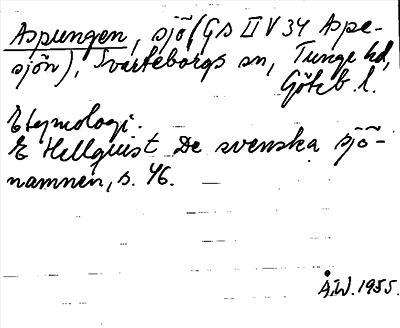 Aspungen, sjö (GS II V 34 Aspe-
sjön), Svarteborgs sn, Tunge hd,
Göteb. l.
Etymologi.
E Hellquist De svenska sjö-
namnen, s. 46.
Å.W. 1955.